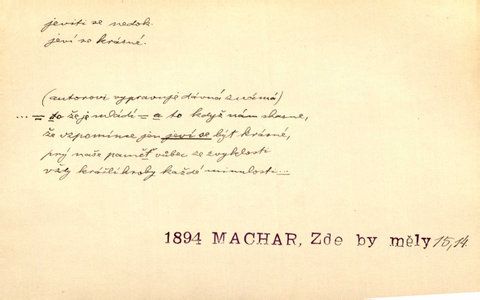 jeviti se nedok.
jeví se krásné.
(autorovi vypravuje dávná známá)
... = to že je mládí = a to když nám shasne,
že vzpomínce jen jeví se být krásné,
prý naše paměť vůbec ze zvyklosti
vždy krášlí hroby každé minulosti ...
1894 MACHAR, Zde by měly 15,14